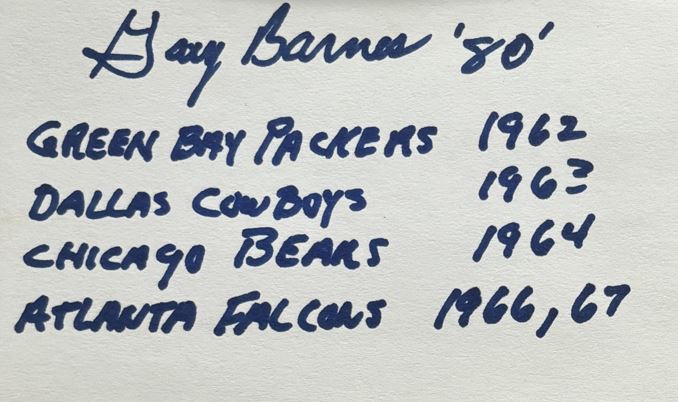 Gary Barnes '80'
GREEN BAY PACKERS 1962
DALLAS COWBOYS 1963
CHICAGO BEARS 1964
ATLANTA FALCONS 1966, 67